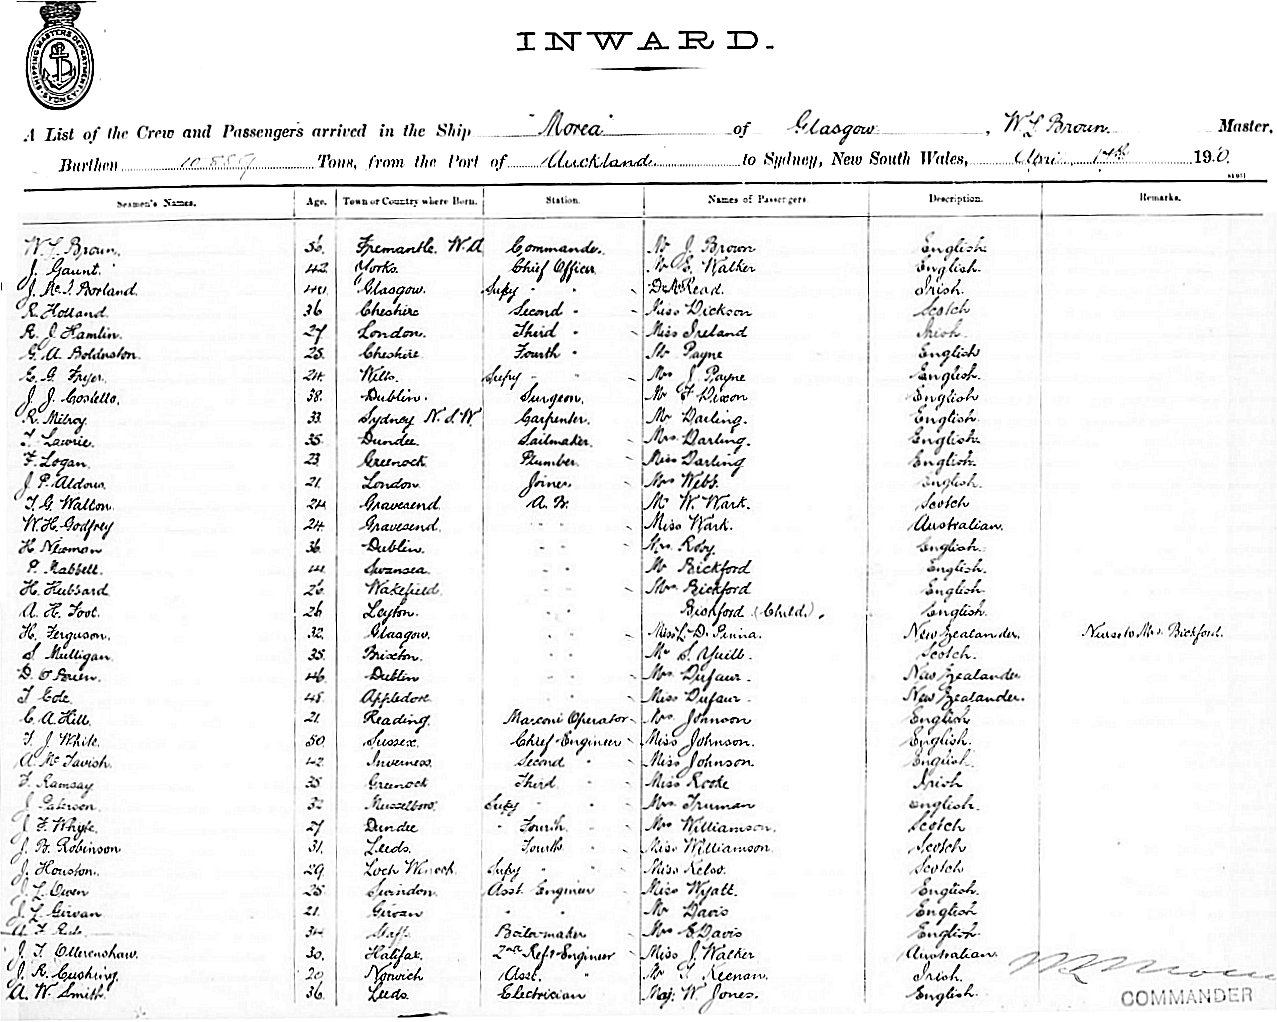 SHIPPING MASTERS DEPARTMENT SYDNEY
INWARD.
A List of the Crew and Passengers arrived in the Ship "Morea" of Glasgow, W L Broun Master,
Burthen 10,889 Tons, from the Port of Auckland to Sydney, New South Wales, April 17th 1910
Seamen's Names. Age. Town or Country where Born. Station. Names of Passengers Description. Remarks.
W. L. Broun. 56 Fremantle. W.A Commander. Mr J. Brown English
J. Gaunt 42 Yorks. Chief Officer Mr E. Walker English.
J. McI. Borland. Glasgow. Supy " " Dr A Read. Irish.
R. Holland. 36 Cheshire Second " Miss Dickson Scotch
R. J. Hamlin. 27 London. Third " Miss Ireland Irish.
G. A. Boldnston. 25 Cheshire Fourth " Mr Payne English
E. G. Fryer. 24 Wilts. Supy " " Mrs J. Payne English.
J. J. Costello. 38. Dublin. Surgeon. Mr F Dixon English
R. Milroy. 33 Sydney N.S.W. Carpenter. Mr Darling. English.
T. Lawrie. 35. Dundee. Sailmaker. Mrs Darling. English.
F. Logan. 23. Greenock Plumber. Miss Darling English.
J. P. Aldous. 21. London Joiner. Mrs Webb. English.
T. G. Walton. 24 Gravesend A. B. Mr W. Wark. Scotch
W. H. Godfrey 24 Gravesend. " " Miss Wark. Australian.
H. Newman 36 Dublin. " " Mrs Roby English.
P. Mabbett. Swansea. " " Mr Bickford English.
H. Hubbard. 26 Wakefield. " " Mrs Bickford English
A. H. Foot. 26 Leyton. " " Bickford (Child). English.
H. Ferguson. 32 Glasgow. " " Miss L. D. Penna. New Zealander. Nurse to Mrs. Bickford.
S. Mulligan. 35 Brixton. " " Mr S. Yuill. Scotch.
D. O'Brien. 46 Dublin " " Mrs Dufaur. New Zealander
T. Ede. 48 Appledore " " Miss Dufaur. New Zealander.
C. A. Hill. 21. Reading Marconi Operator Mrs Johnson English
T. J. White. 50 Sussex. Chief Engineer Miss Johnson. English.
A. McTavish. 42 Inverness. Second " Miss Johnson. English.
F. Ramsay 35 Greenock Third " Miss Rooke Irish
J. Paterson. 32 Musselboro'. Supy " " Mrs Truman English.
J. F. Whyte. 27 Dundee " Fourth " Mrs Williamson. Scotch
J. B. Robinson 31. Leeds. Fourth " Miss Williamson. Scotch
J. Houston. 29 Loch Winoch. Supy " " Miss Kelso. Scotch
J. L. Owen 25 Swindon. Asst. Engineer Miss Wyatt. English.
J. L. Girvan 21. Girvan " " Mr Davis English
34 Boiler-maker Mrs E. Davis English.
J. T. Ollerenshaw. 30. Halifax. 2nd Refr Engineer Miss J. Walker Australian.
J. R. Cushing. 20 Norwich Asst. " Mr T. Keenan. Irish.
A. W. Smith. 36 Leeds. Electrician Maj. W. Jones. English.
COMMANDER